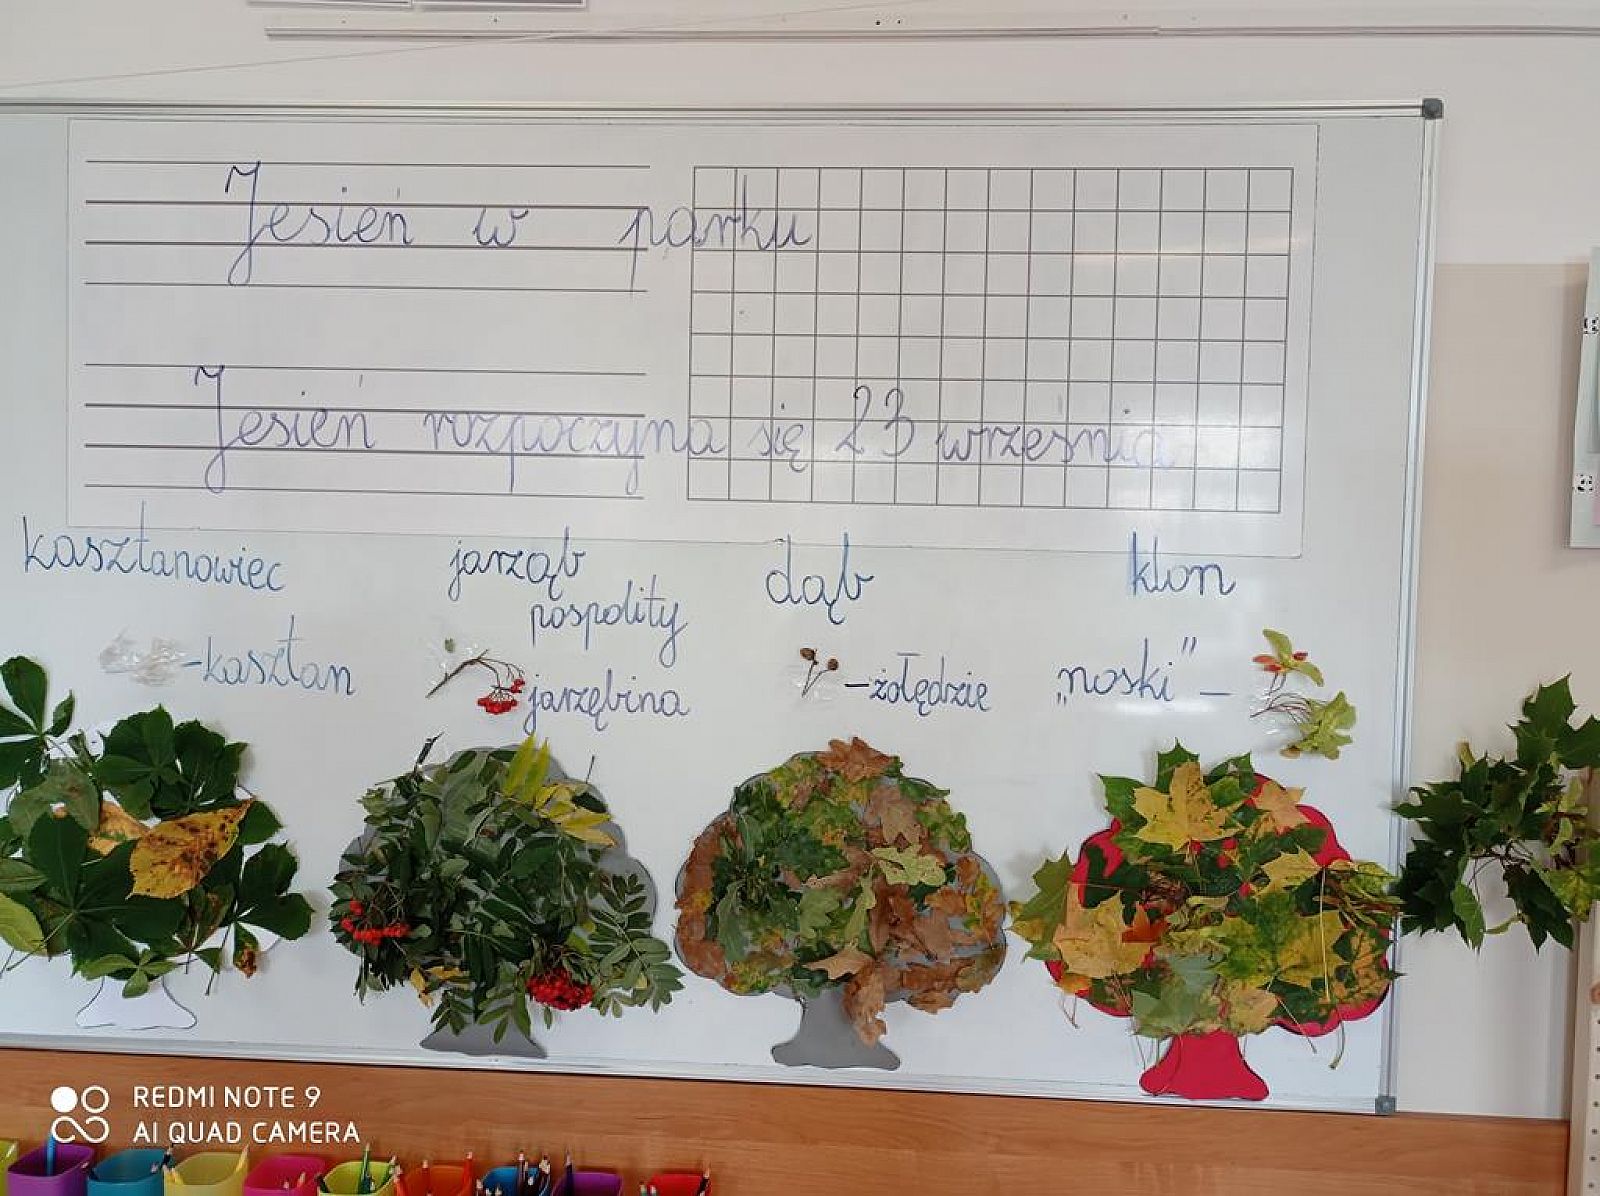 Jesień w parku
Jesień rozpoczyna się 23 września
kasztanowiec
jarząb
pospolity
dąb
klon
-kasztan
-jarzębina
-żołędzie
„noski” -
REDMI NOTE 9
AI QUAD CAMERA